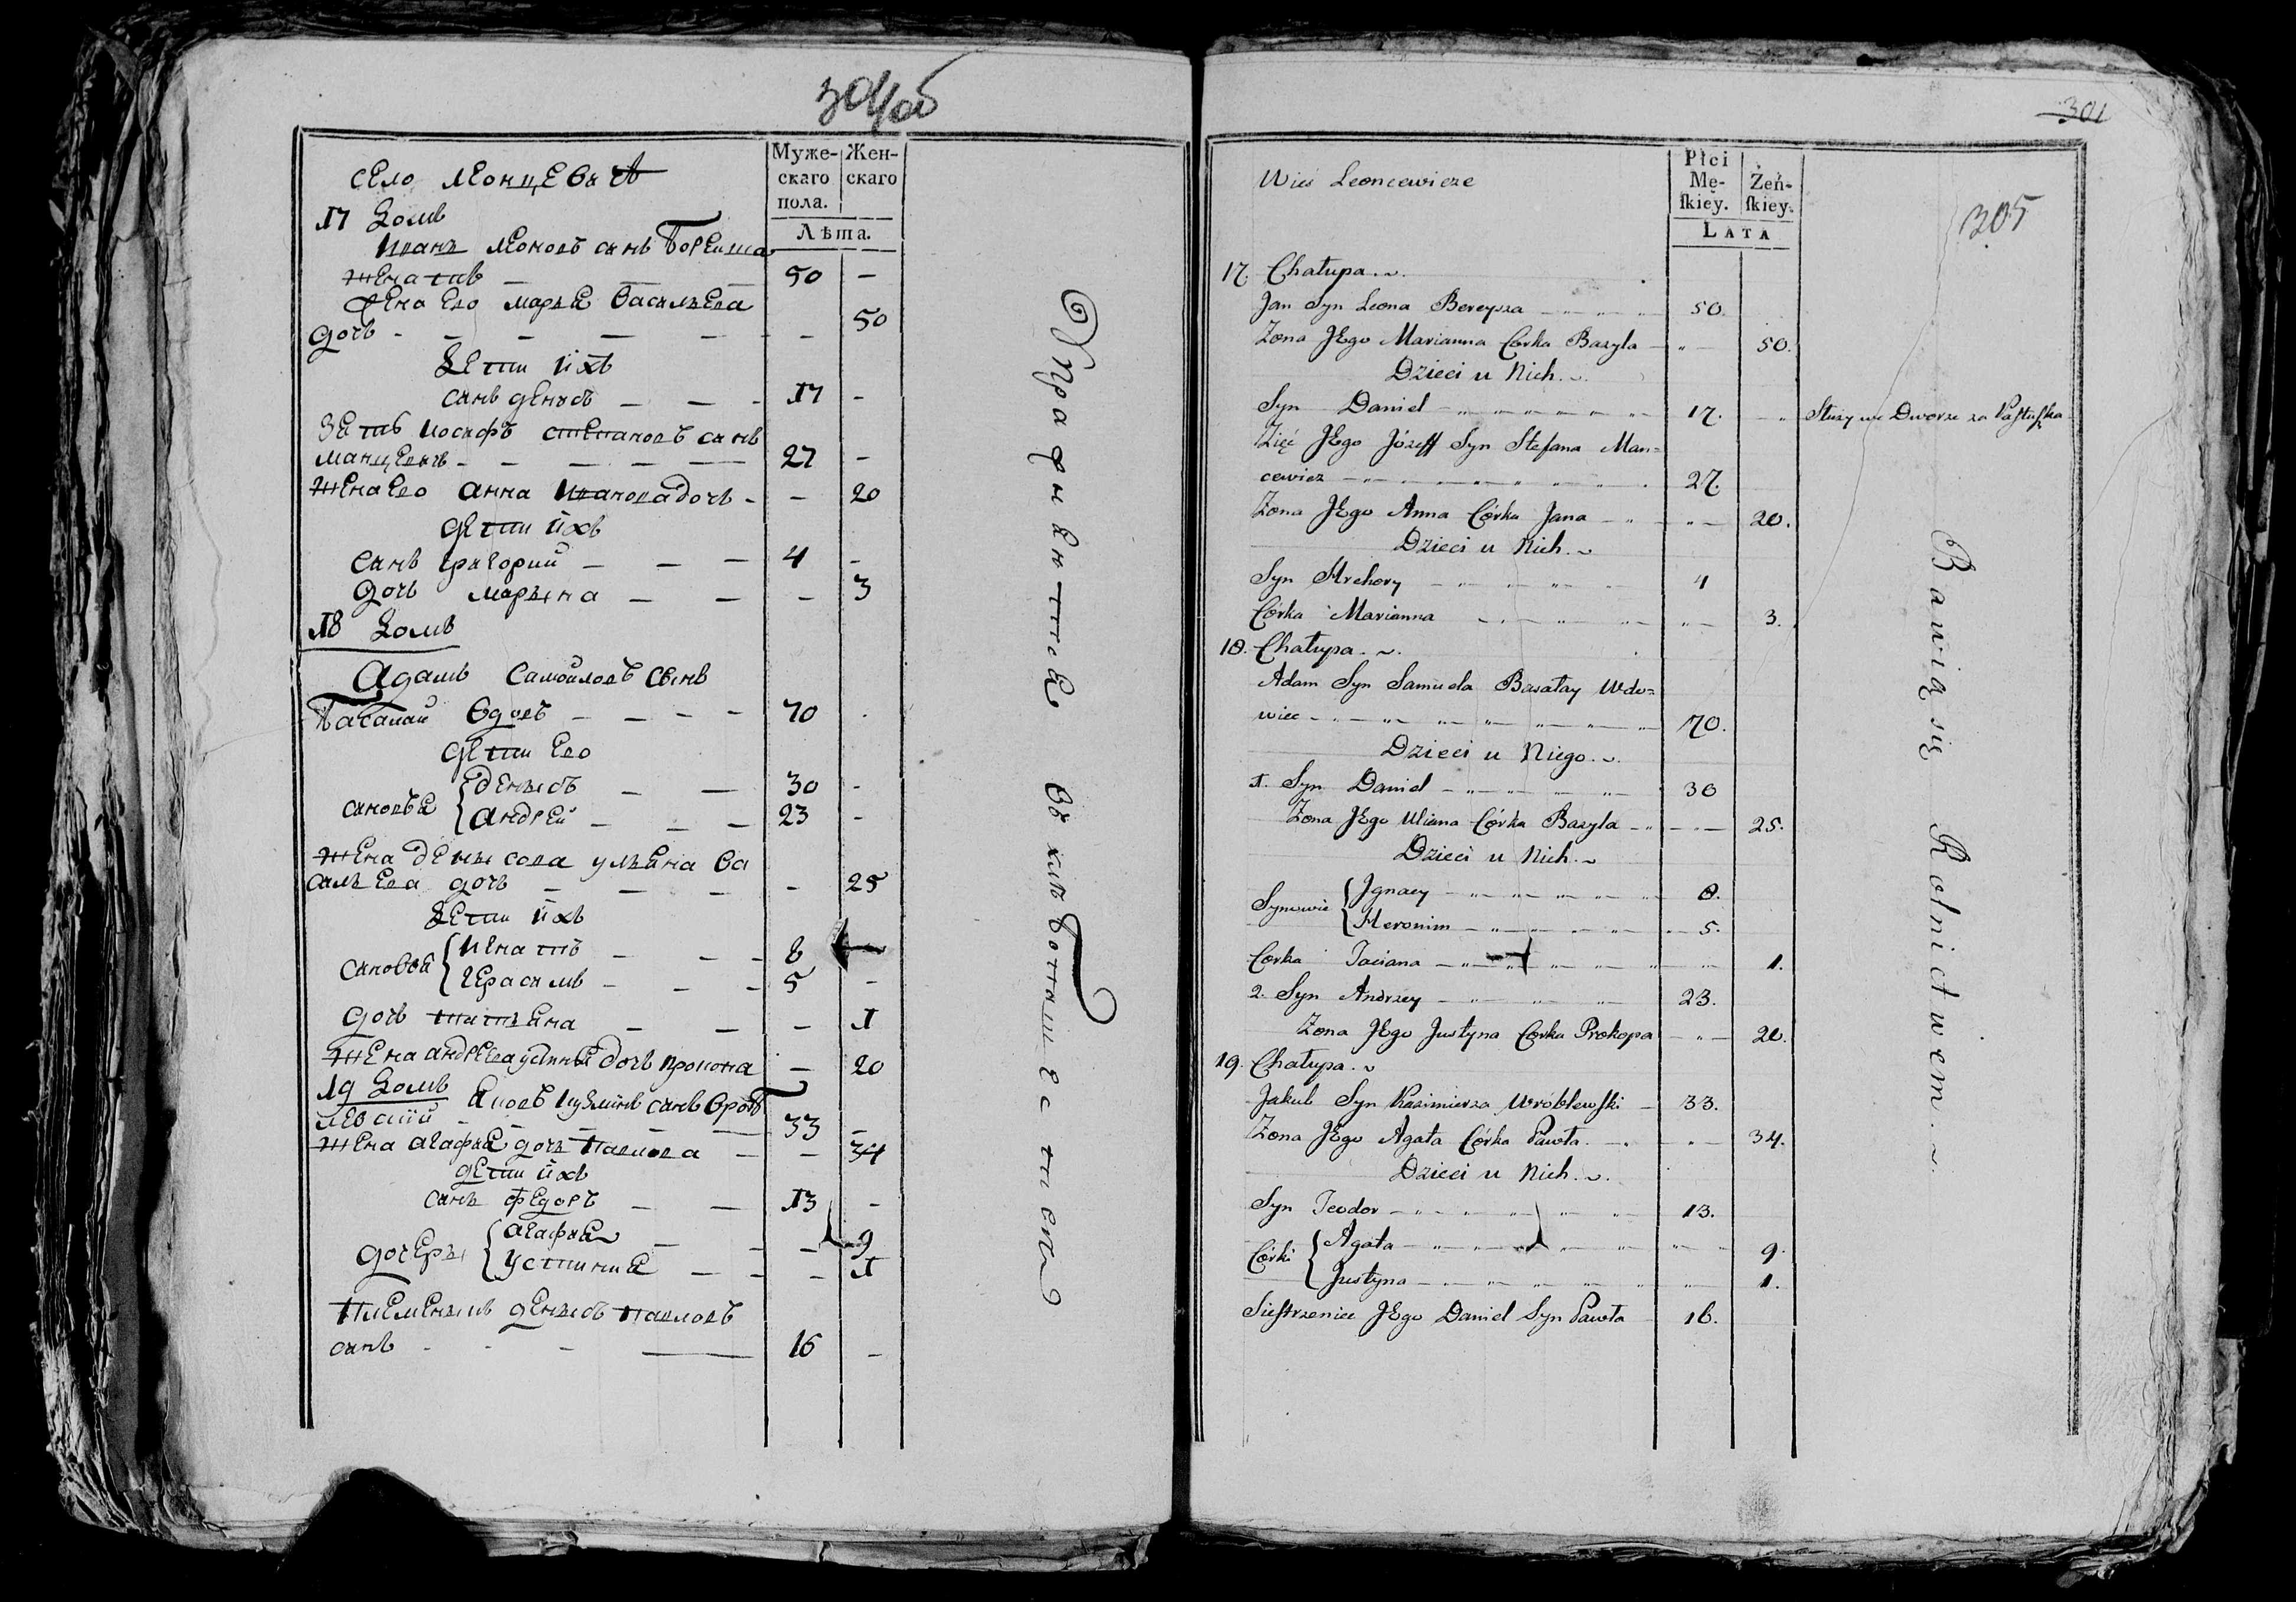 304об
Муже-
скаго
пола.
Жен-
скаго
Лѣта.
село Леонцевичи
17 Домъ
Иванъ Леоновъ сынъ Борейша
женатъ — 50 —
Жена Его марья василъева
дочъ - - - - - 50
Дети ихъ
сынъ денисъ — — - 17 -
Зеть иосифъ степановъ сынъ
манцевичъ - - - - 27 -
жена Его анна Иванова дочъ - - 20
дети ихъ
сынъ григорий — — — 4 -
дочъ марьяна — — - 3
18 Домъ
адамъ самойловъ сынъ
басалай вдовъ - - - - 70 -
дети Его
сыновья { денисъ — — 30 -
андрей - — — 23 -
жена денисова ульяна ва
силъева дочъ — — — - 25
Дети ихъ
сыновья { игнатъ — - - 8
герасимъ - - - 5 -
дочъ татьяна — — - 1
жена андреева устинья дочъ прокопа — 20
19 Домъ яковъ казимировъ сынъ вроб
левский 33 -
жена агафья дочъ павлова — - 34
дети ихъ
сынъ федоръ — — 13 -
дочеры { агафья — - - 9
устиния — - - 1
племеникъ денисъ павловъ
сынъ - - - — 16 -
Упражняется въ хлебопашестве
301
305
Wieś Leoncewicze
Płci
Mę-
ſkiey.
Żeń-
ſkiey.
LATA
17. Chałupa.
Jan Syn Leona Bereysza 50.
Zona JEgo Marianna Corka Bazyla 50.
Dzieci u Nich.
Syn Daniel 17. Służy we Dworze za Paſtuſzka
Zięć JEgo Józeff Syn Stefana Man=
cewicz 27.
Zona JEgo Anna Córka Jana 20.
Dzieci u Nich.
Syn Hrehory 4
Córka Marianna 3.
18. Chałupa.
Adam Syn Samuela Basałay Wdo=
wiec 70.
Dzieci u Niego.
1. Syn Daniel 30
Zona JEgo Uliana Córka Bazyla 25.
Dzieci u Nich.
Synowie { Jgnacy 8.
Heronim 5.
Corka Taciana 1.
2. Syn Andrzey 23.
Zona JEgo Justyna Corka Prokopa 20.
19. Chałupa.
Jakub Syn Kazimierza Wróblewſki 33.
Zona JEgo Agata Córka Pawła. 34.
Dzieci u Nich.
Syn Teodor 13.
Córki { Agata 9.
Justyna 1.
Sieſtrzeniec JEgo Daniel Syn Pawła 16.
Bawią się Rolnictwem.